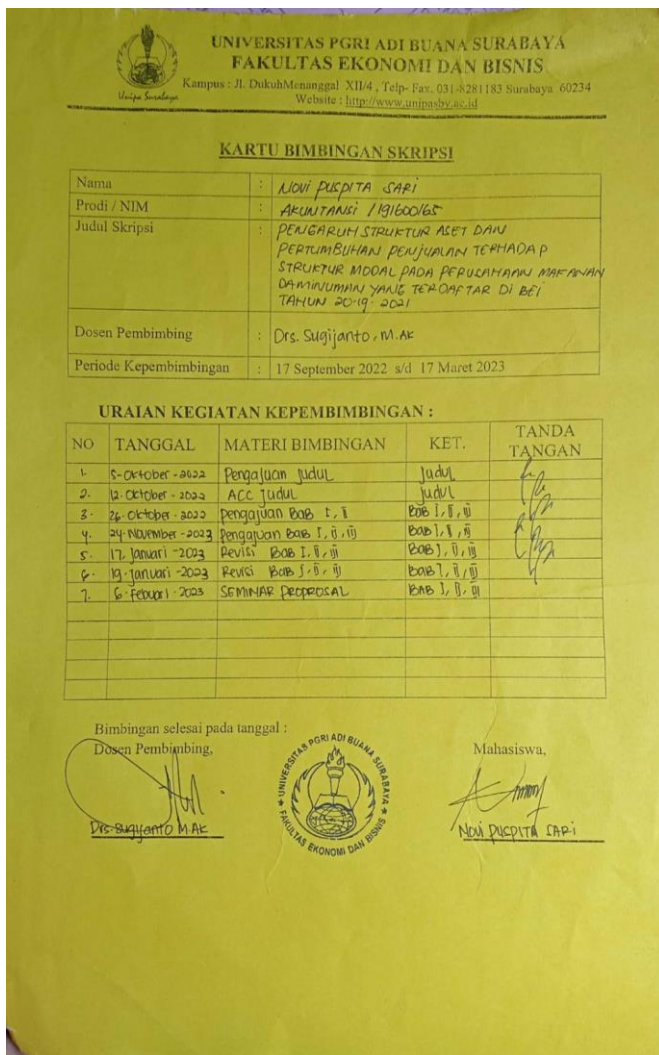 UNIVERSITAS PGRI ADI BUANA SURABAYA
FAKULTAS EKONOMI DAN BISNIS
Kampus : Jl. DukuhMenanggal XII/4 , Telp- Fax. 031-8281183 Surabaya 60234
Website : http://www.unipasby.ac.id
Unipa Surabaya
KARTU BIMBINGAN SKRIPSI
Nama : NOVI PUSPITA SARI
Prodi / NIM : AKUNTANSI / 191600165
Judul Skripsi : PENGARUH STRUKTUR ASET DAN
PERTUMBUHAN PENJUALAN TERHADAP
STRUKTUR MODAL PADA PERUSAHAAN MAKANAN
DAMINUMAN YANG TERDAFTAR DI BEI
TAHUN 20-19- 2021
Dosen Pembimbing : Drs. Sugijanto, M.AK
Periode Kepembimbingan : 17 September 2022 s/d 17 Maret 2023
URAIAN KEGIATAN KEPEMBIMBINGAN :
NO TANGGAL MATERI BIMBINGAN KET. TANDA TANGAN
1. 5-Oktober-2022 Pengajuan Judul Judul
2. 12-Oktober-2022 ACC Judul Judul
3. 26-Oktober-2022 Pengajuan Bab I, II BAB I, II, III
4. 24-November-2023 Pengajuan BAB I, II, III Bab I, II, III
5. 17, Januari -2023 Revisi BAB I, II, III BAB I, II, III
6. 19-Januari-2023 Revisi BAB I, II, III BAB I, II, III
7. 6-Febuari-2023 SEMINAR PROPROSAL BAB I, II, III
Bimbingan selesai pada tanggal :
Dosen Pembimbing, Mahasiswa,
UNIVERSITAS PGRI ADI BUANA SURABAYA
FAKULTAS EKONOMI DAN BISNIS
Drs. Sugiyanto M.AK NOVI PUSPITA SARI